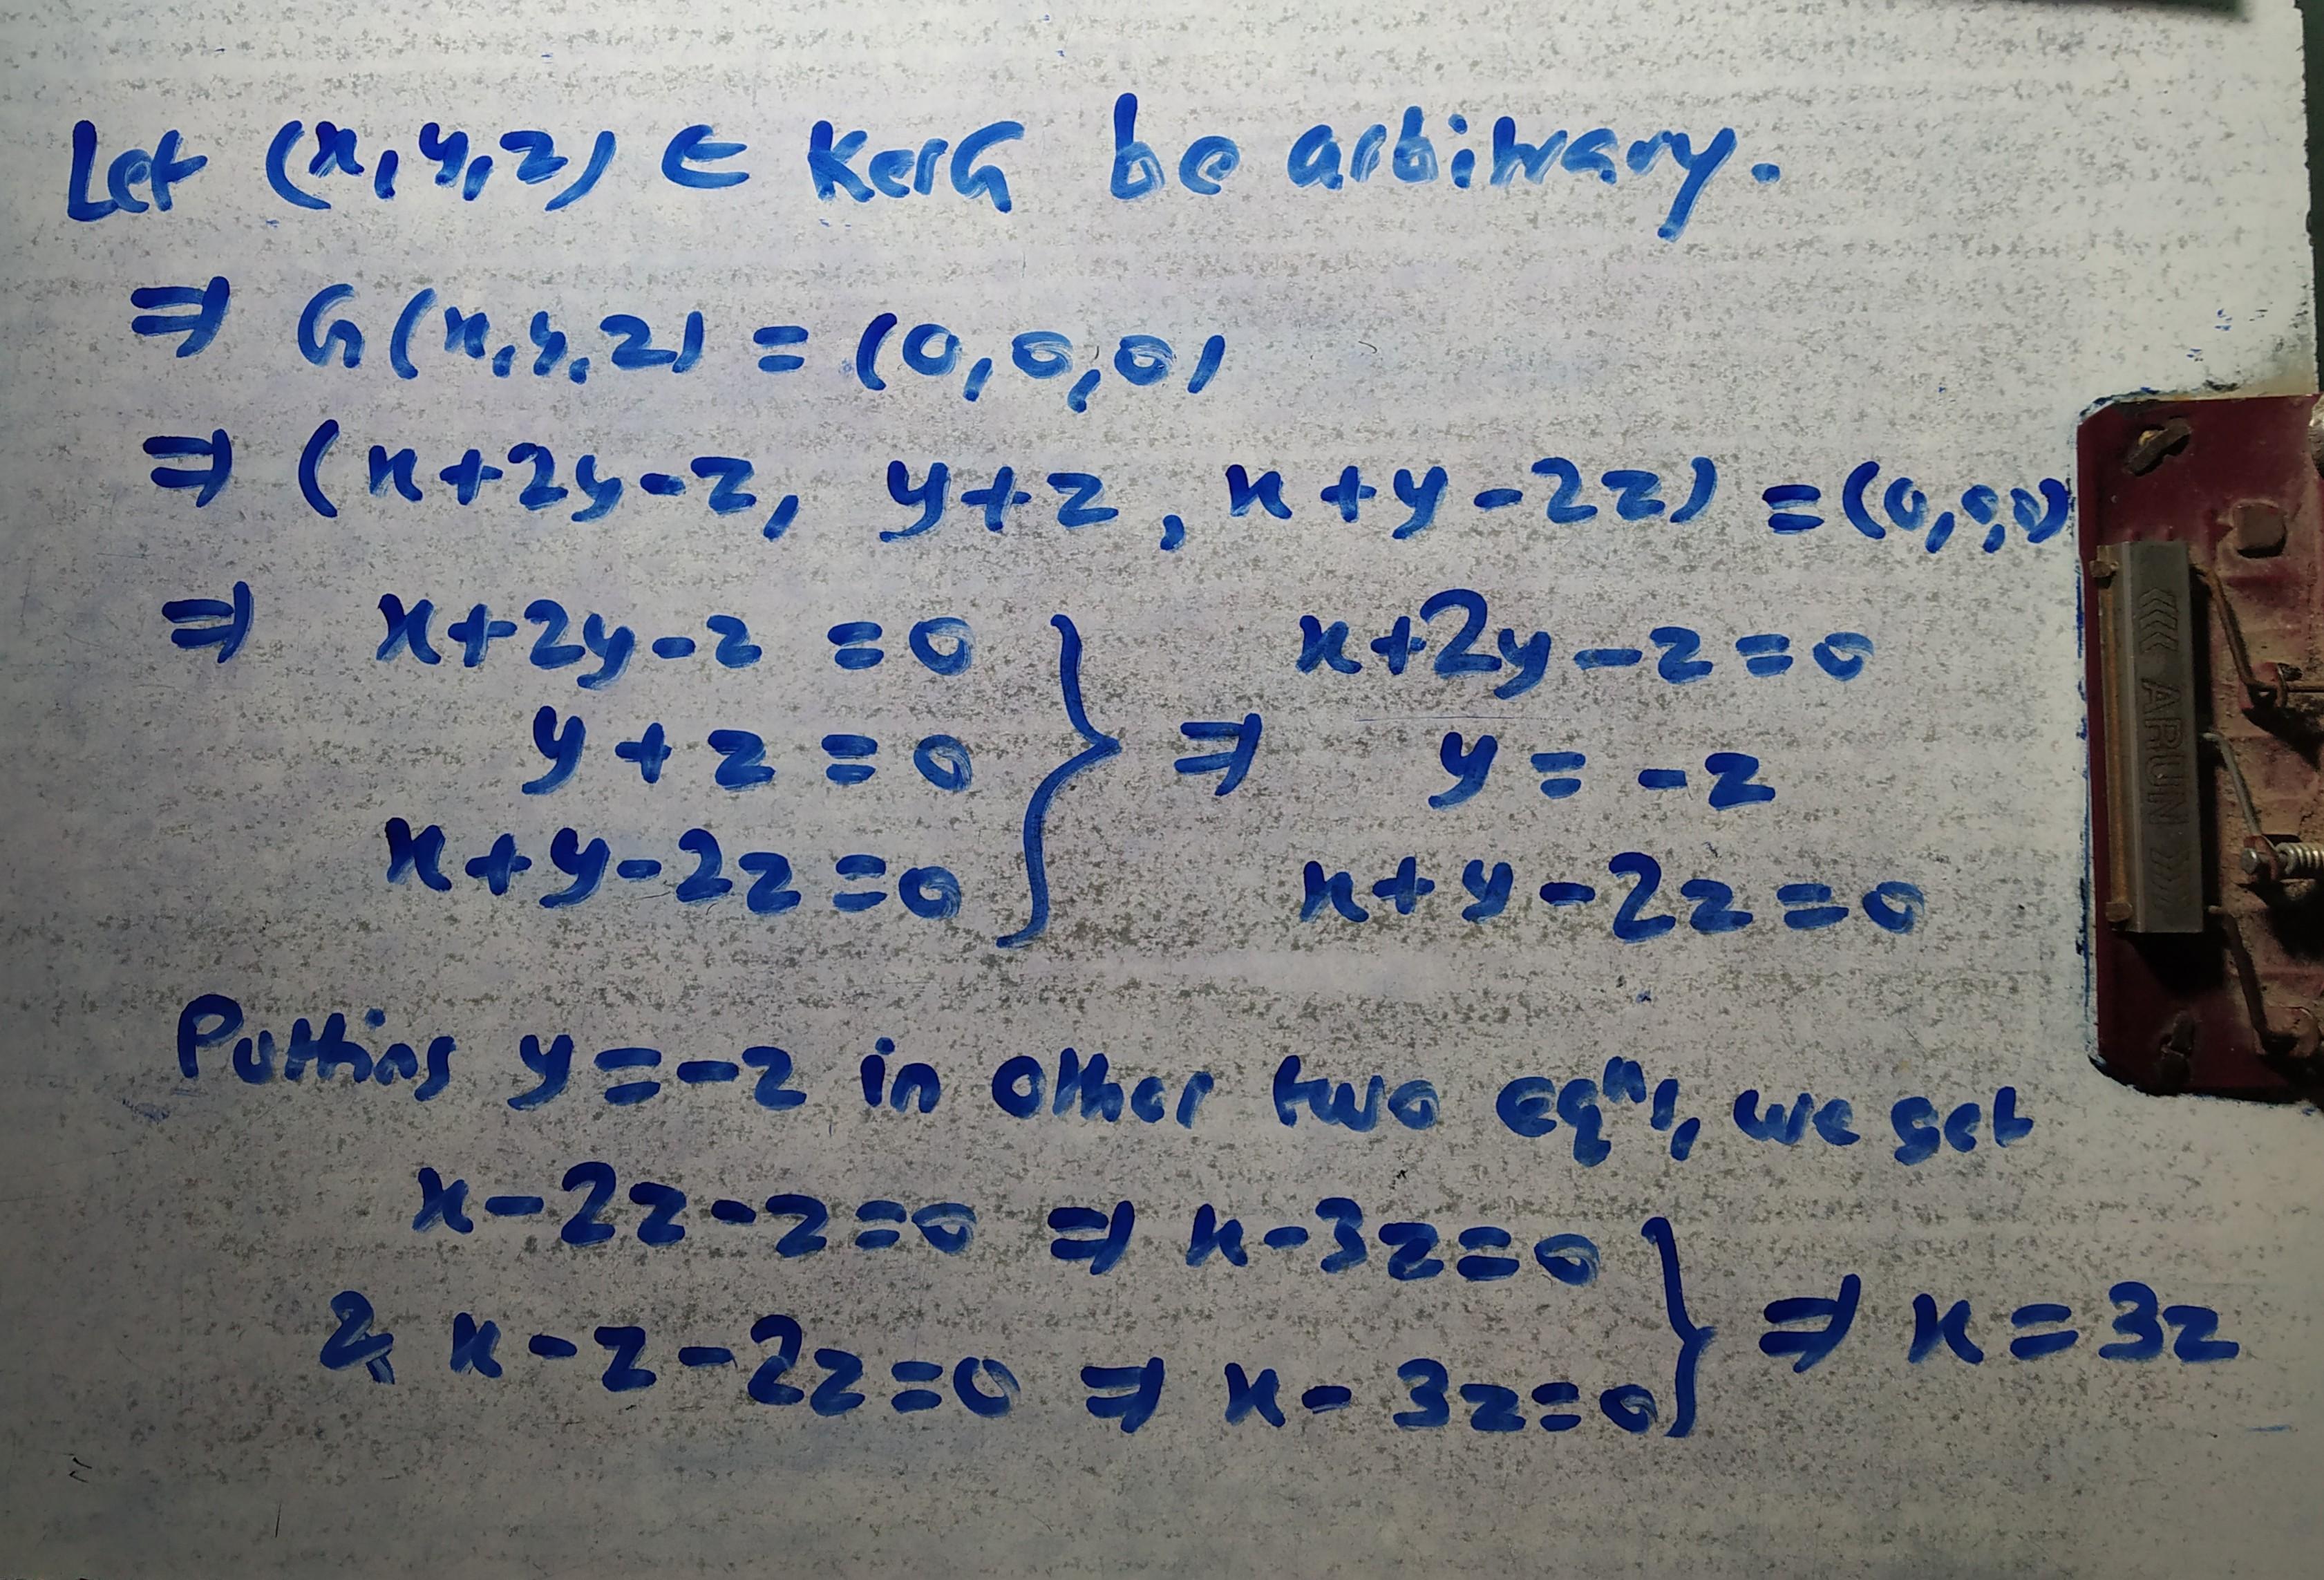 Let (x,y,z) ∈ KerG be arbitrary.
⇒ G(x,y,z) = (0,0,0)
⇒ (x+2y-z, y+z, x+y-2z) = (0,0,0)
⇒ x+2y-z = 0 } ⇒ x+2y-z=0
y+z = 0 y = -z
x+y-2z=0 x+y-2z=0
Putting y=-z in other two eqⁿs, we get
x-2z-z=0 ⇒ x-3z=0 } ⇒ x=3z
& x-z-2z=0 ⇒ x-3z=0
<<< ARUN >>>